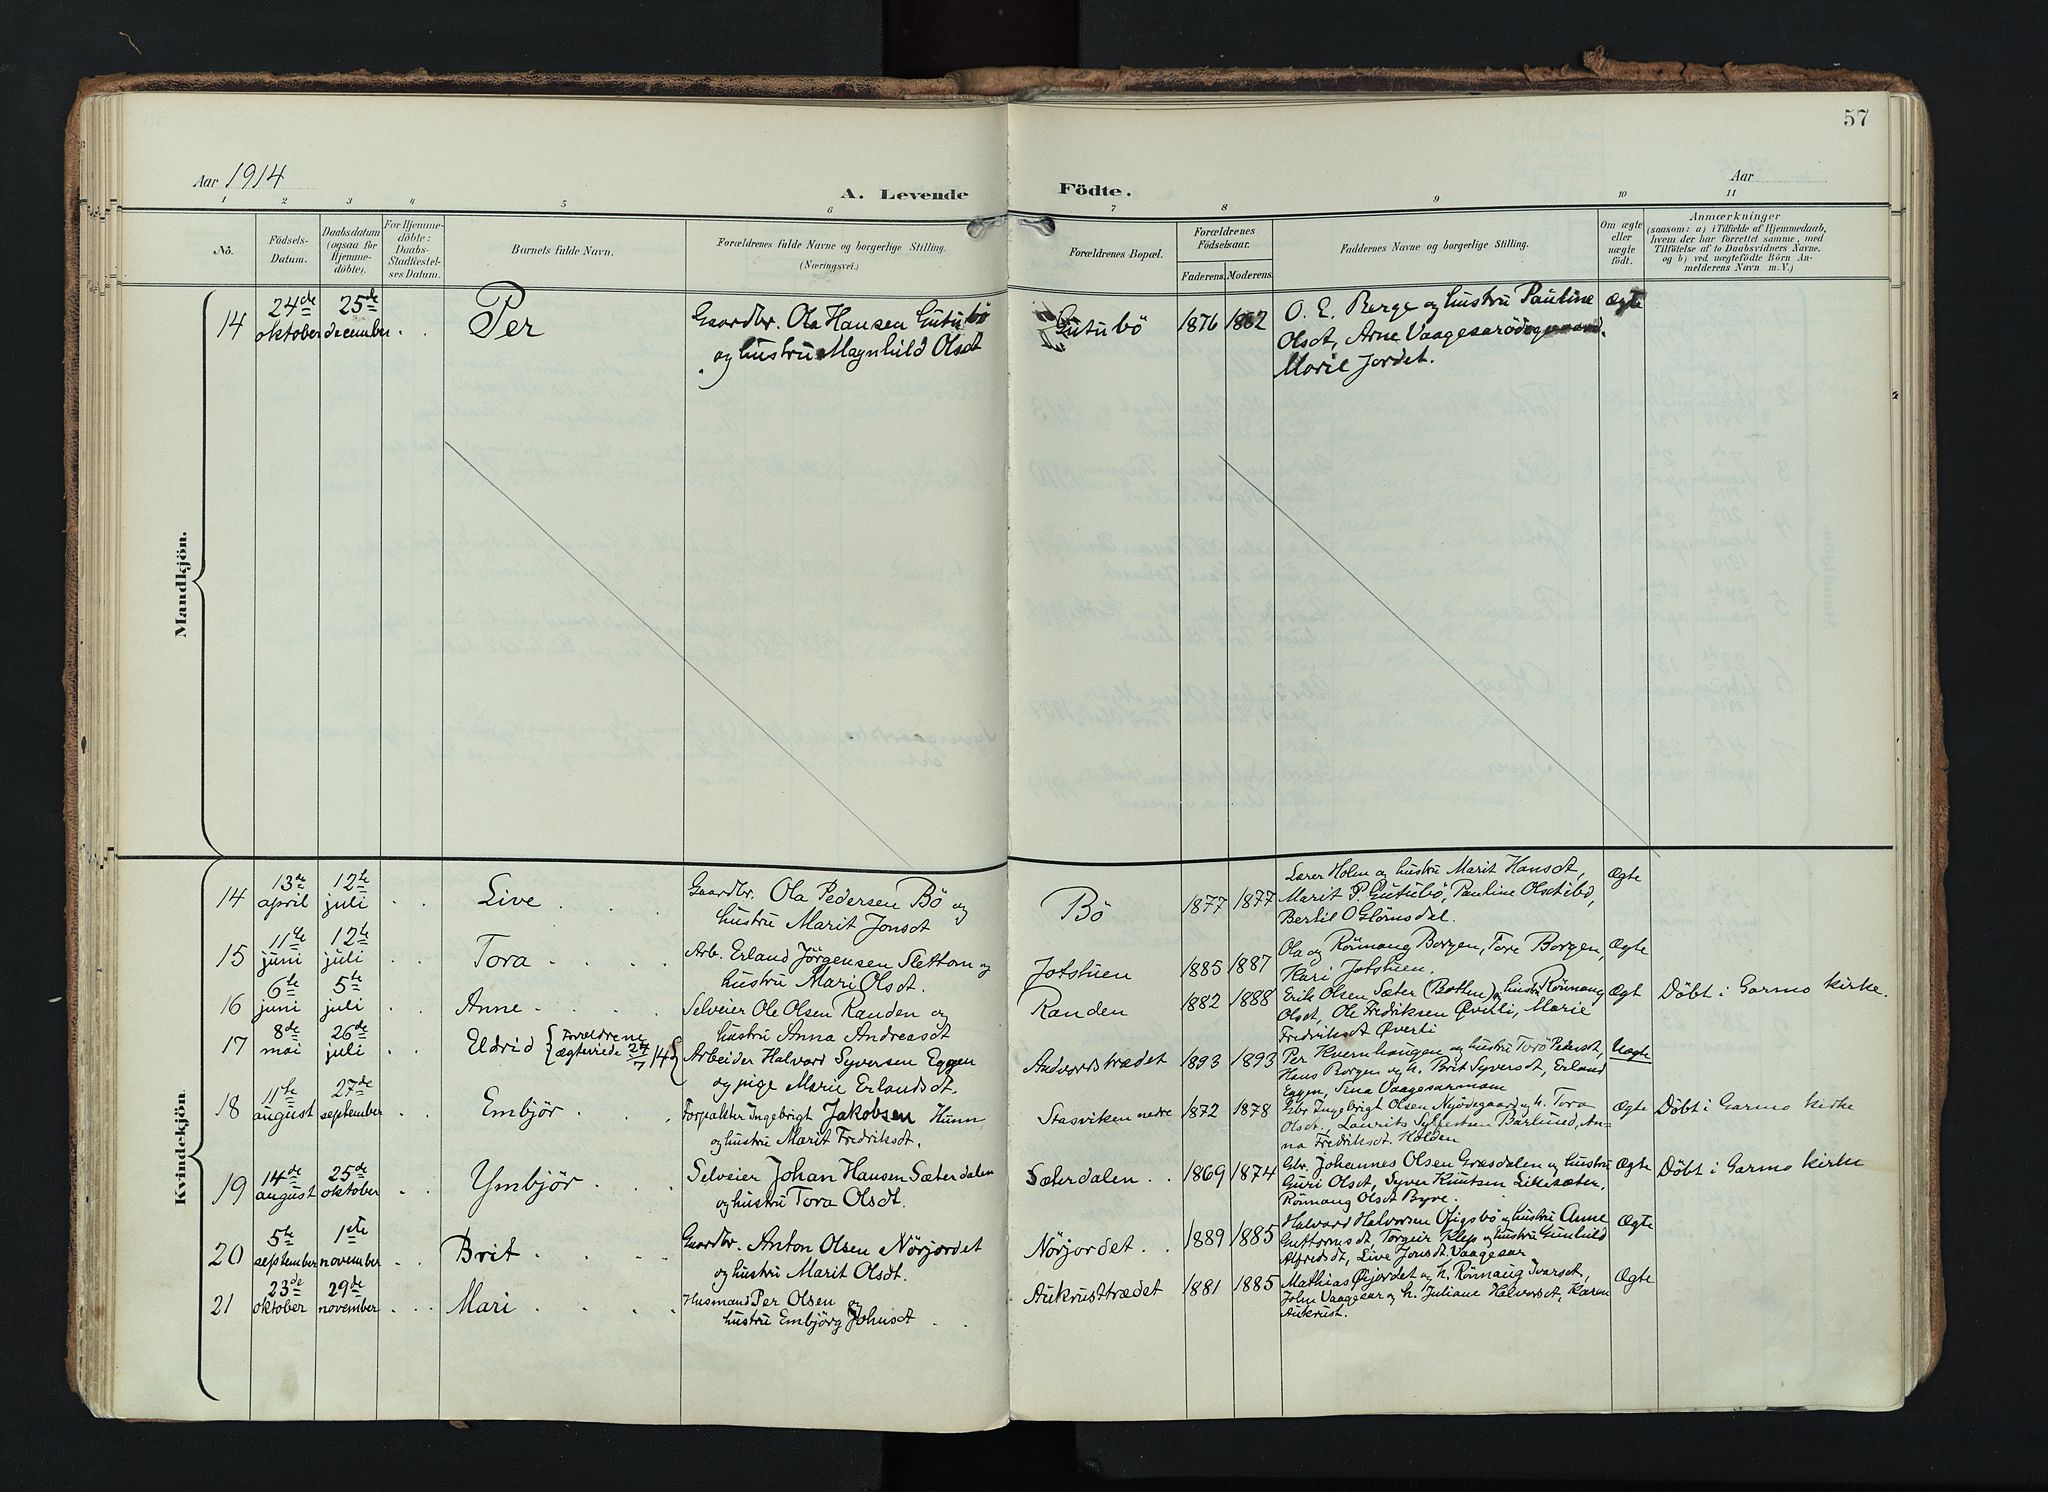 57
Aar 1914
A. Levende
Födte.
Aar
1 2 3 4 5 6 7 8 9 10 11
No.
Födsels-
Datum.
Daabsdatum
(ogsaa for
Hjemme-
döbte).
For Hjemme-
döbte:
Daabs-
Stadfæstel-
ses Datum.
Barnets fulde Navn.
Forældrenes fulde Navne og borgerlige Stilling.
(Næringsvei.)
Forældrenes Bopæl.
Forældrenes
Födselsaar.
Faderens. Moderens.
Faddernes Navne og borgerlige Stilling.
Om ægte
eller
uægte
födt.
Anmærkninger
(saasom: a) i Tilfælde af Hjemmedaab,
hvem der har forrettet samme, med
Tilföielse af to Daabsvidners Navne.
og b) ved uægtefödte Börn An-
melderens Navn m. V.)
Mandkjön.
14 24de oktober 25de december Per
Gaardbr. Ola Hansen Gutubö
og hustru Magnhild Olsdt
Gutubö 1876 1882
O. E. Berge og hustru Pauline
Olsdt, Arne
Marie Jordet.
Ægte
Kvindekjön.
14 13de april 12te juli Live
Gaardbr. Ola Pedersen Bö og
hustru Marit Jonsdt
Bö 1877 1877
Lærer Holm og hustru Marit Hansdt,
Marit P. Gutubö, Pauline
Bertil O Glömsdal.
Ægte
15 11te juni 12te juli Tora
Arb. Erland Jörgensen Slettom og
hustru Mari Olsdt.
Jotstuen 1885 1887
Ola og Rönnaug Borgen, Tore Borgen,
Kari Jotstuen.
Ægte
16 6te juni 5te juli Anne
Selveier Ole Olsen Randen og
hustru Anna Andreasdt
Randen 1882 1888
Erik Olsen Sæter (Botten) og hustru Rönnaug
Olsdt, Ole Fredriksen Øverli, Marie
Fredriksdt Øverli
Ægt Döbt i Garmo kirke.
17 8de mai 26de juli Eldrid {Forældrene
ægteviede 24/7 14}
Arbeider Halvard Syversen Eggen
og pige Marie Erlandsdt.
Andvordstrædet 1893 1893
Per Kvernhaugen og hustru Torö Pedersdt,
Hans Borgen og h. Brit Syversdt, Erland
Eggen, Sina
Uægte
18 11te august 27de september Embjör
Forpakter Ingebrigt Jakobsen Hunn
og hustru Marit Fredriksdt.
Stasviken nedre 1872 1878
Gbr. Ingebrigt Olsen Nyödegaard og h. Tora
Olsdt., Laurits Sylfestsen Barlund, An-
na Fredriksdt Kolden
Ægte Döbt i Garmo kirke
19 14de august 25de oktober Ymbjör
Selveier Johan Hansen Sæterdalen
og hustru Tora Olsdt.
Sæterdalen 1869 1874
Gbr. Johannes Olsen Græsdalen og hustru
Guri Olsdt, Syver Knutsen Lillesæter,
Rönnaug Olsdt Byre.
Ægte Döbt i Garmo kirke
20 5te september 1ste november Brit
Gaardbr. Anton Olsen Nörjordet
og hustru Marit Olsdt.
Nörjordet 1889 1885
Halvard Halvorsen Ofigsbö og hustru Anne
Guttormsdt, Torgeir Klep og hustru Gunhild
Alfredsdt, Live Jonsdt. Vaagesar
Ægte
21 23de oktober 29de november Mari
Husmand Per Olsen og
hustru Embjörg Johnsdt
Aukrusttrædet 1881 1885
Mathias Øijordet og h. Rönnaug Ivarsdt,
John Vaagesar og h. Juliane Halvorsdt, Karen
Aukrust.
Ægte